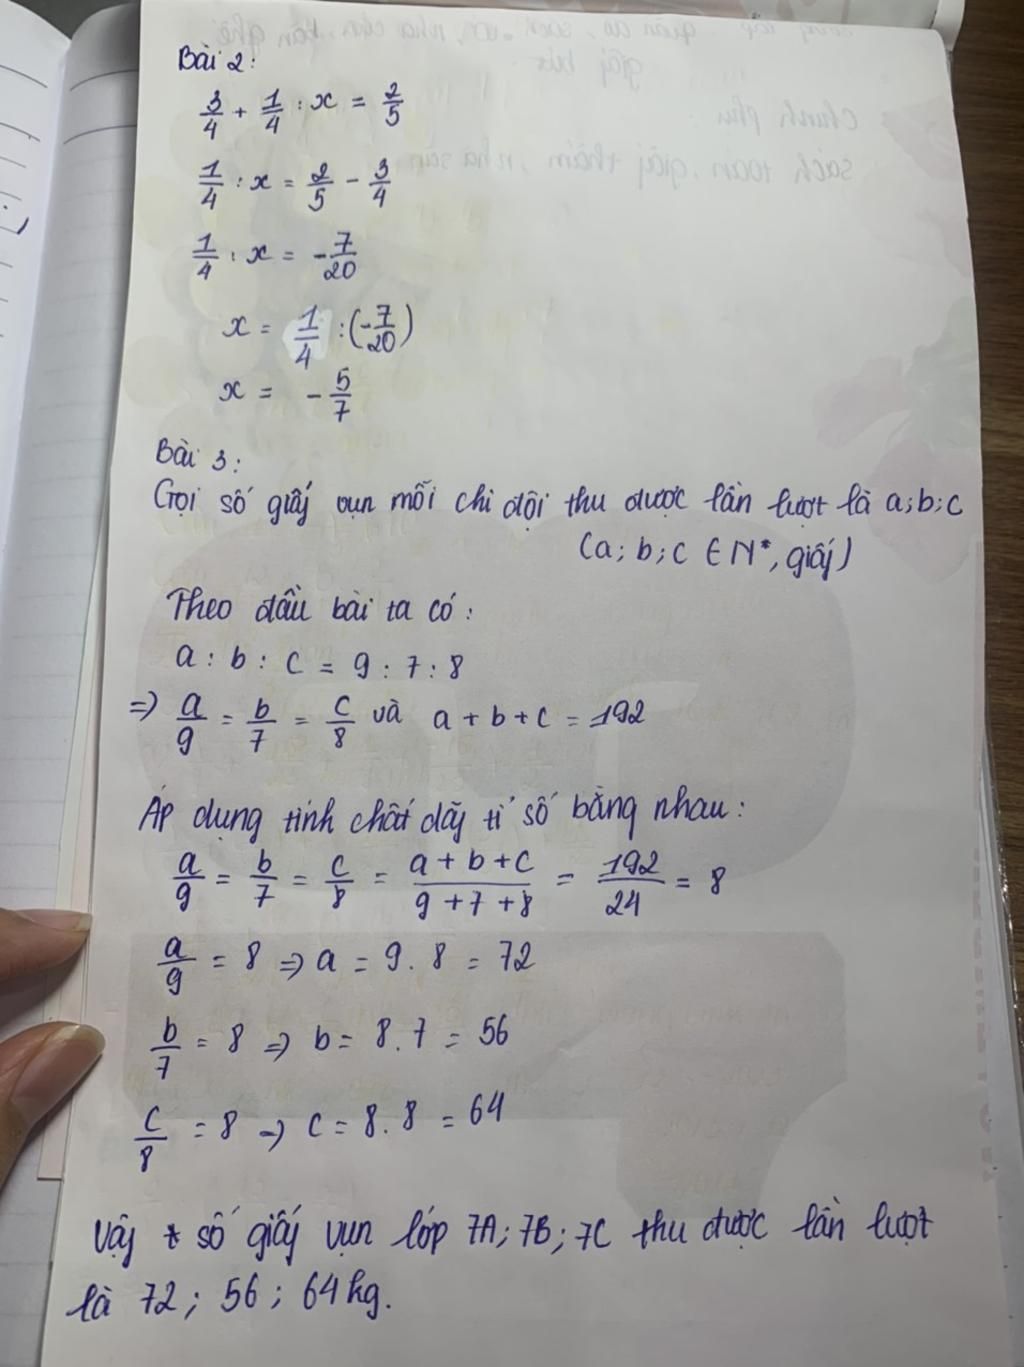 Bài 2:
3/4 + 1/4 : x = 2/5
1/4 : x = 2/5 - 3/4
1/4 : x = -7/20
x = 1/4 : (-7/20)
x = -5/7
Bài 3:
Gọi số giấy vụn mỗi chi đội thu được lần lượt là a; b; c
(a; b; c ∈ N*, giấy)
Theo đầu bài ta có:
a : b : c = 9 : 7 : 8
=> a/9 = b/7 = c/8 và a + b + c = 192
Áp dụng tính chất dãy tỉ số bằng nhau:
a/9 = b/7 = c/8 = (a + b + c)/(9 + 7 + 8) = 192/24 = 8
a/9 = 8 => a = 9 . 8 = 72
b/7 = 8 => b = 8 . 7 = 56
c/8 = 8 => c = 8 . 8 = 64
Vậy số giấy vụn lớp 7A; 7B; 7C thu được lần lượt
là 72; 56; 64kg.